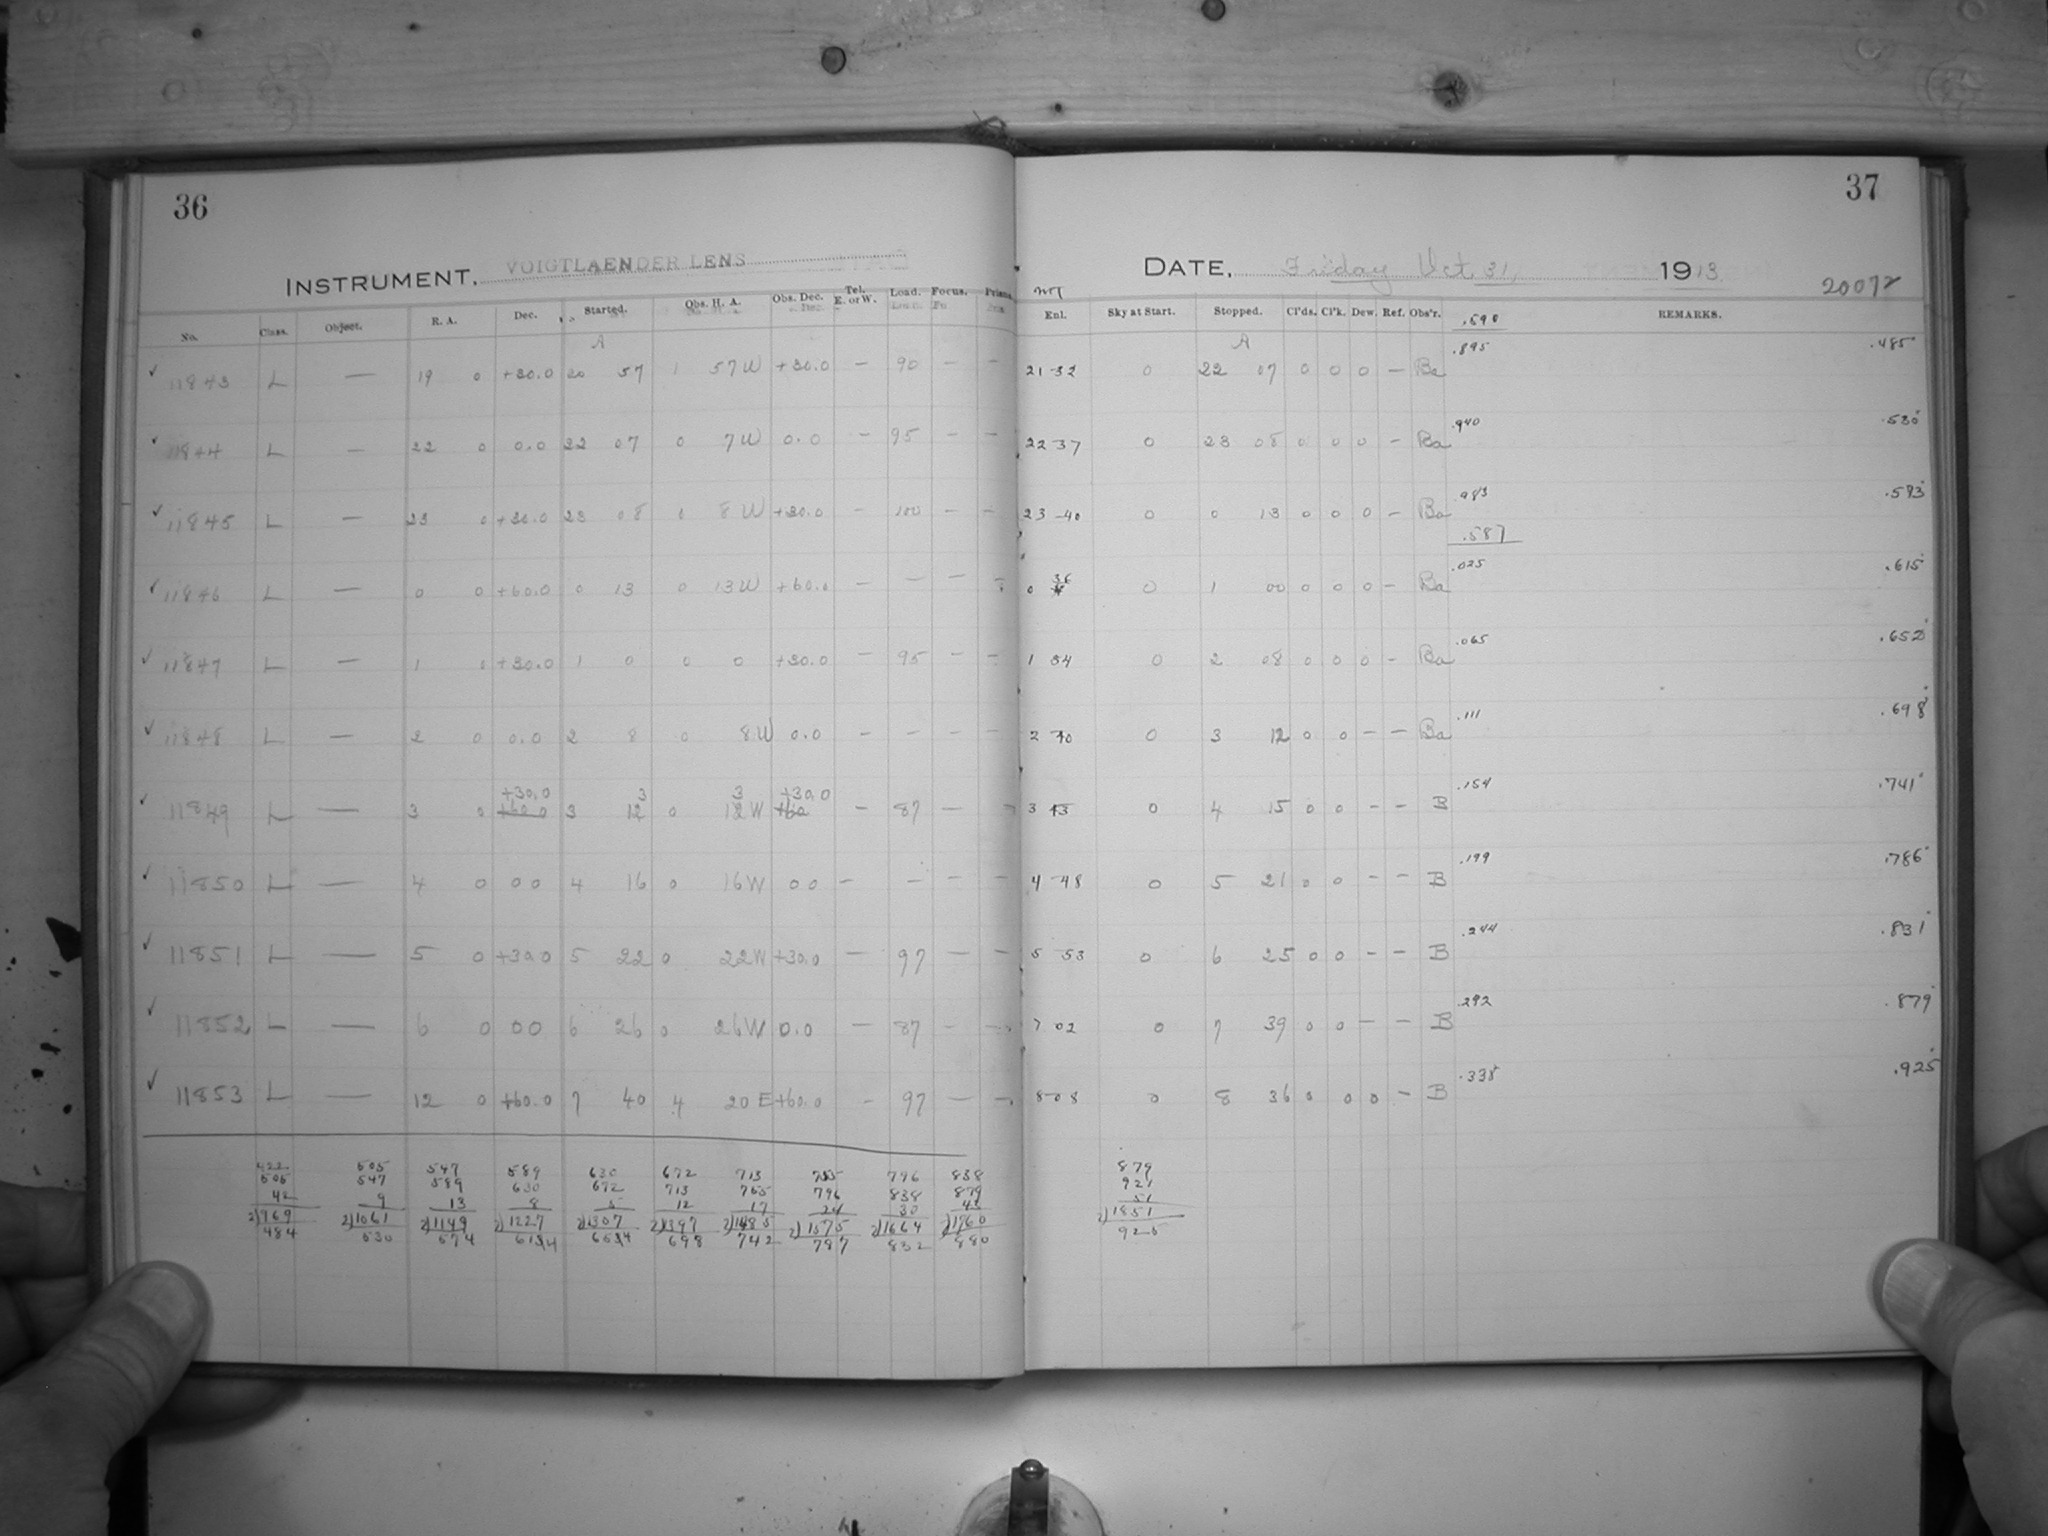 36
INSTRUMENT, VOIGTLAENDER LENS
No. Class. Object. R. A. Dec. Started. Obs. H. A. Obs. Dec. Tel. E. or W. Load. Focus. Prism.
A
✓ 11843 L — 19 0 +30.0 20 57 1 57 W +30.0 — 90 — —
✓ 11844 L — 22 0 0.0 22 07 0 7 W 0.0 — 95 — —
✓ 11845 L — 23 0 +30.0 23 08 0 8 W +30.0 — 100 — —
✓ 11846 L — 0 0 +60.0 0 13 0 13 W +60.0 — — — —
✓ 11847 L — 1 0 +30.0 1 0 0 0 +30.0 — 95 — —
✓ 11848 L — 2 0 0.0 2 8 0 8 W 0.0 — — — —
+30.0 3 3 +30.0
✓ 11849 L — 3 0 +60.0 3 12 0 12 W +60 — 87 — —
✓ 11850 L — 4 0 00 4 16 0 16 W 00 — — — —
✓ 11851 L — 5 0 +30.0 5 22 0 22 W +30.0 — 97 — —
✓ 11852 L — 6 0 00 6 26 0 26 W 0.0 — 87 — —
✓ 11853 L — 12 0 +60.0 7 40 4 20 E +60.0 — 97 — —
422 505 547 589 630 672 713 755 796 838
505 547 589 630 672 713 755 796 838 879
42 9 13 8 5 12 17 24 30 43
2)969 2)1061 2)1149 2)1227 2)1307 2)1397 2)1485 2)1575 2)1664 2)1760
484 530 574 614 654 698 742 787 832 880
37
DATE, Friday Oct. 31, 1913
20072
Enl. Sky at Start. Stopped. Cl'ds. Cl'k. Dew. Ref. Obs'r. .590 REMARKS.
A .895 .485
21 32 0 22 07 0 0 0 — Ba
.940 .530
22 37 0 23 08 0 0 0 — Ba
.983 .573
23 40 0 0 13 0 0 0 — Ba
.587
.025 .615
36
0 0 1 00 0 0 0 — Ba
.065 .652
1 34 0 2 08 0 0 0 — Ba
.111 .698
2 40 0 3 12 0 0 — — Ba
.154 .741
3 43 0 4 15 0 0 — — B
.199 .786
4 48 0 5 21 0 0 — — B
.244 .831
5 53 0 6 25 0 0 — — B
.292 .879
7 02 0 7 39 0 0 — — B
.338 .925
8 08 0 8 36 0 0 0 — B
879
921
51
2)1851
925